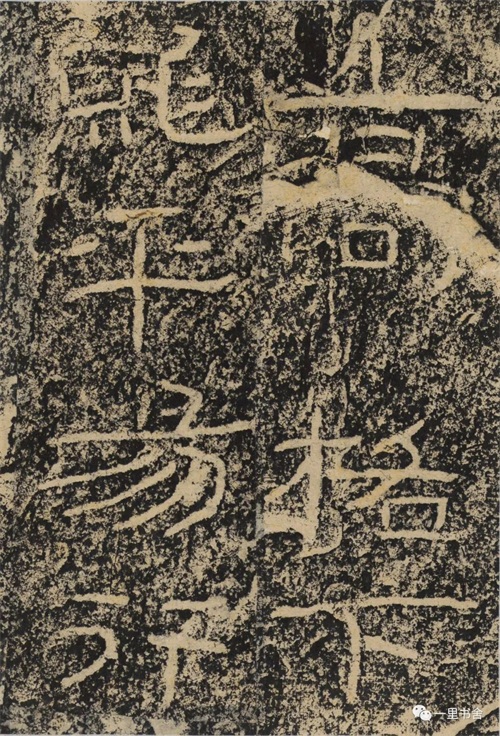 高格下
就平易行
一里书舍